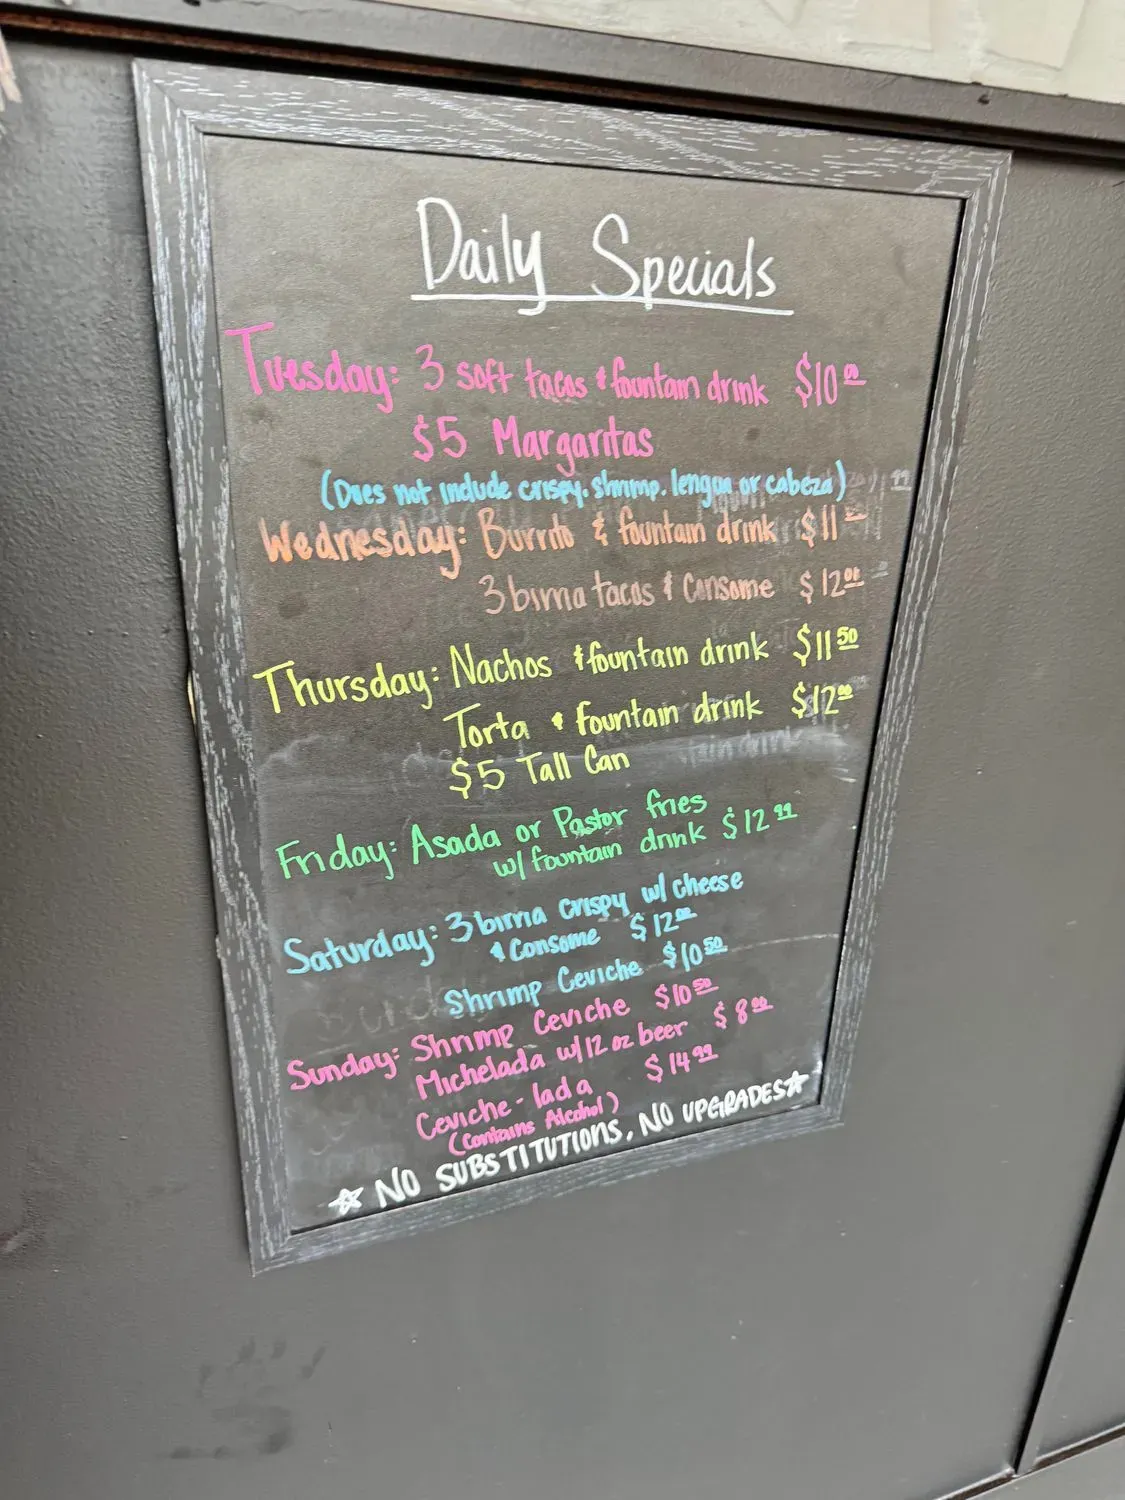 Daily Specials
Tuesday: 3 soft tacos & fountain drink $10 00
$5 Margaritas
(Does not include crispy, shrimp, lengua or cabeza)
Wednesday: Burrito & fountain drink $11
3 birria tacos & Consome $12 00
Thursday: Nachos & fountain drink $11 50
Torta & fountain drink $12 00
$5 Tall Can
Friday: Asada or Pastor fries
w/ fountain drink $12 99
Saturday: 3 birria crispy w/ cheese
& Consome $12 00
Shrimp Ceviche $10 50
Sunday: Shrimp Ceviche $10 50
Michelada w/ 12 oz beer $8 00
Ceviche-lada $14 99
(Contains Alcohol)
☆ NO SUBSTITUTIONS, NO UPGRADES ☆